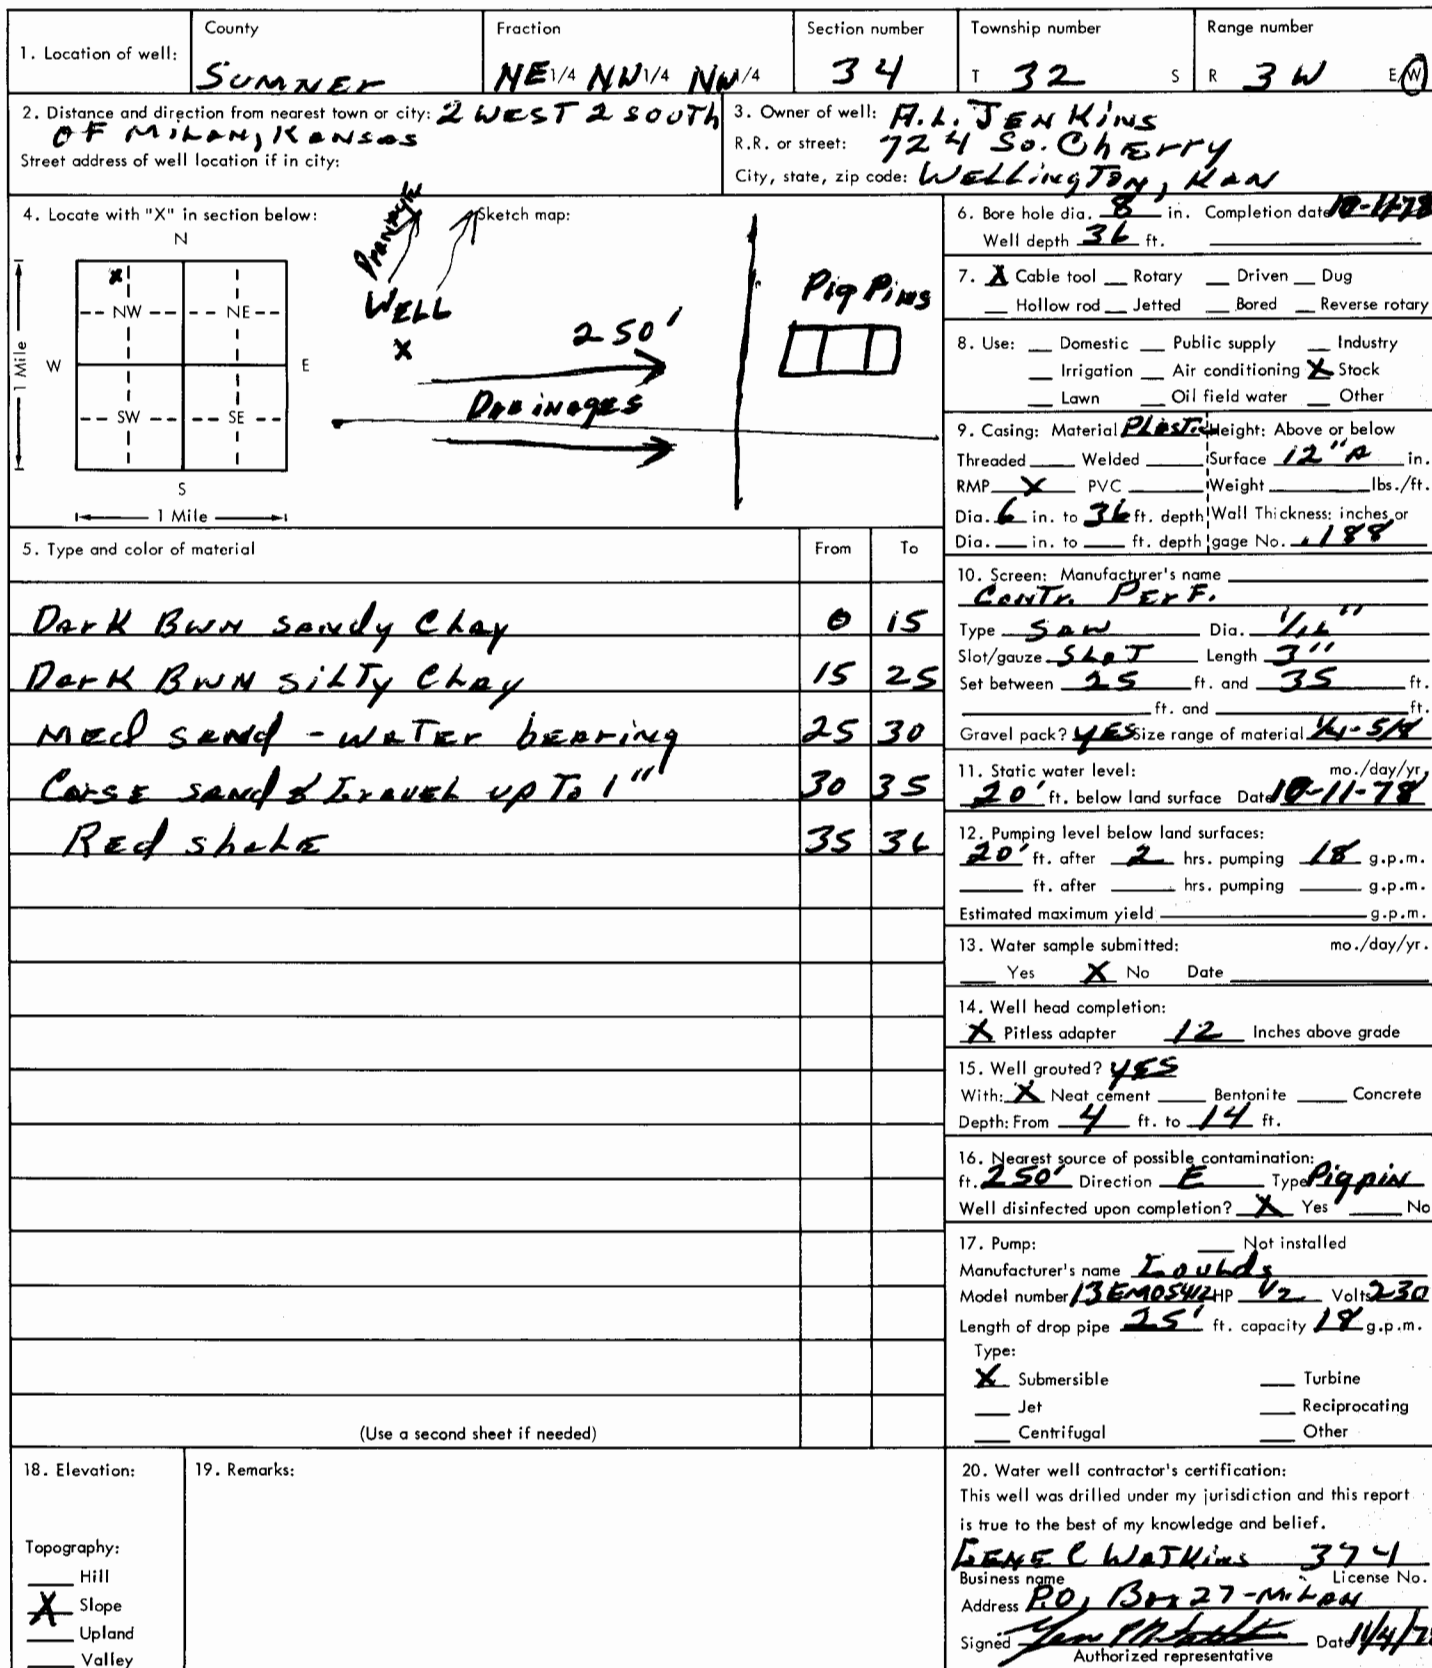 1. Location of well:
County
SUMNER
Fraction
NE 1/4 NW 1/4 NW 1/4
Section number
34
Township number
T 32 S
Range number
R 3 W E/W
2. Distance and direction from nearest town or city: 2 WEST 2 SOUTH
OF MILAN, KANSAS
Street address of well location if in city:
3. Owner of well: A.L. JENKINS
R.R. or street: 724 So. Cherry
City, state, zip code: WELLINGTON, KAN
4. Locate with "X" in section below:
N
X
NW NE
W E
SW SE
S
1 Mile
1 Mile
Sketch map:
Drainage
WELL
X
250'
Drainages
Pig Pins
5. Type and color of material From To
Dark BWN sandy Clay 0 15
Dark BWN silty Clay 15 25
Med sand - WATER bearing 25 30
Corse sand & Gravel up To 1" 30 35
Red shale 35 36
(Use a second sheet if needed)
6. Bore hole dia. 8 in. Completion date 10-11-78
Well depth 36 ft.
7. X Cable tool Rotary Driven Dug
Hollow rod Jetted Bored Reverse rotary
8. Use: Domestic Public supply Industry
Irrigation Air conditioning X Stock
Lawn Oil field water Other
9. Casing: Material Plastic Height: Above or below
Threaded Welded Surface 12" A in.
RMP X PVC Weight lbs./ft.
Dia. 6 in. to 36 ft. depth Wall Thickness: inches or
Dia. in. to ft. depth gage No. .188
10. Screen: Manufacturer's name
Contr. PERF.
Type SAW Dia. 1/16"
Slot/gauze SLOT Length 3"
Set between 25 ft. and 35 ft.
ft. and ft.
Gravel pack? YES Size range of material 1/4-5/8
11. Static water level: mo./day/yr.
20' ft. below land surface Date 10-11-78
12. Pumping level below land surfaces:
20' ft. after 2 hrs. pumping 18 g.p.m.
ft. after hrs. pumping g.p.m.
Estimated maximum yield g.p.m.
13. Water sample submitted: mo./day/yr.
Yes X No Date
14. Well head completion:
X Pitless adapter 12 Inches above grade
15. Well grouted? YES
With: X Neat cement Bentonite Concrete
Depth: From 4 ft. to 14 ft.
16. Nearest source of possible contamination:
ft. 250' Direction E Type Pigpin
Well disinfected upon completion? X Yes No
17. Pump: Not installed
Manufacturer's name Goulds
Model number 13EM05412 HP 1/2 Volts 230
Length of drop pipe 25' ft. capacity 18 g.p.m.
Type:
X Submersible Turbine
Jet Reciprocating
Centrifugal Other
18. Elevation:
Topography:
Hill
X Slope
Upland
Valley
19. Remarks:
20. Water well contractor's certification:
This well was drilled under my jurisdiction and this report
is true to the best of my knowledge and belief.
GENE C WATKINS 374
Business name License No.
Address P.O. Box 27-Milan
Signed Date 11/4/78
Authorized representative